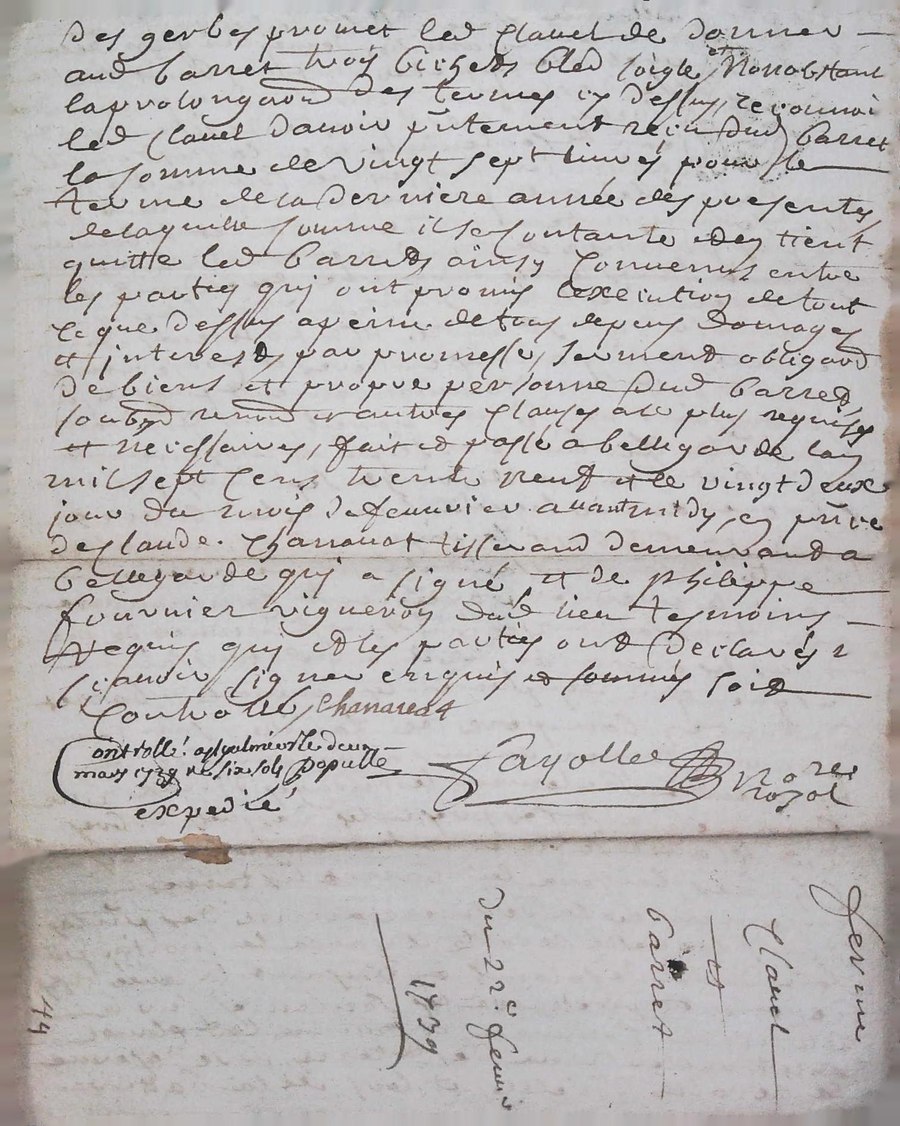 des gerbes promet led Clauel de donner
aud barret trois bichets bled soigle, et Nonobstant
la prolongaond des termes cy dessus, reconnoi
led Clauel dauoir pntement receu dud barret
la somme de vingt sept liures pour le
terme de la derniere année des presentes,
de laquelle somme il se contante et en tient
quitte led barret, ainsy Conuenus entre
les parties qui ont promis lexecution de tout
Ce que dessus a peine de tous depens domages
et interests par promesse, serment obligaond
de biens et propre personne dud barret
soubd renond et autres Clauses a ce plus requises
et necessaires, fait et passé a bellegarde lan
mil sept Cens trente neuf et le vingt deux
jour du mois de feuurier auant midy, en pnce
de Claude Chanauat tisserand demeurand a
bellegarde qui a signé et de philippe
fournier vigneron dud lieu tesmoins
requis qui et les parties ont declarés
scauoir signer enquis et sommés soit
Controllé, Chanauat
Controllé a st galmier le deux
mars 1739 six sols Popülle
expedié
Fayolle Nore
royol
ferme
Clauel
et
barret
du 22e feurier
1739
44